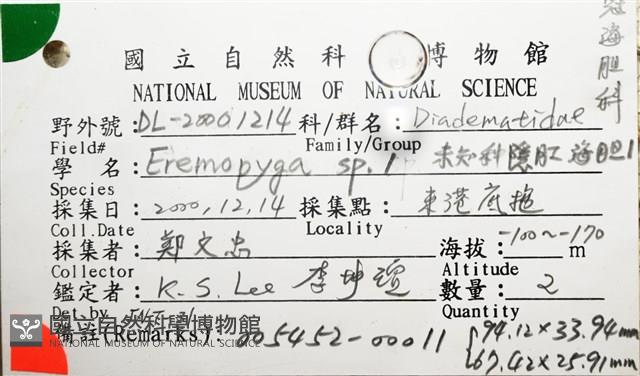 冠海胆科
國立自然科 博物館
NATIONAL MUSEUM OF NATURAL SCIENCE
野外號:DL-20001214 科/群名:Diadematidae
Field# Family/Group
學 名:Eremopyga sp.1 未知科隱肛海胆1
Species
採集日:2000,12,14 採集點:東港底拖
Coll.Date Locality
採集者:鄭文忠 海拔:-100~-170 m
Collector Altitude
鑑定者:K.S.Lee 李坤瑄 數量:2
Det.by Quantity
備註(Remarks):005452-00011 94.12×33.94mm
67.42×25.91mm
國立自然科學博物館
NATIONAL MUSEUM OF NATURAL SCIENCE